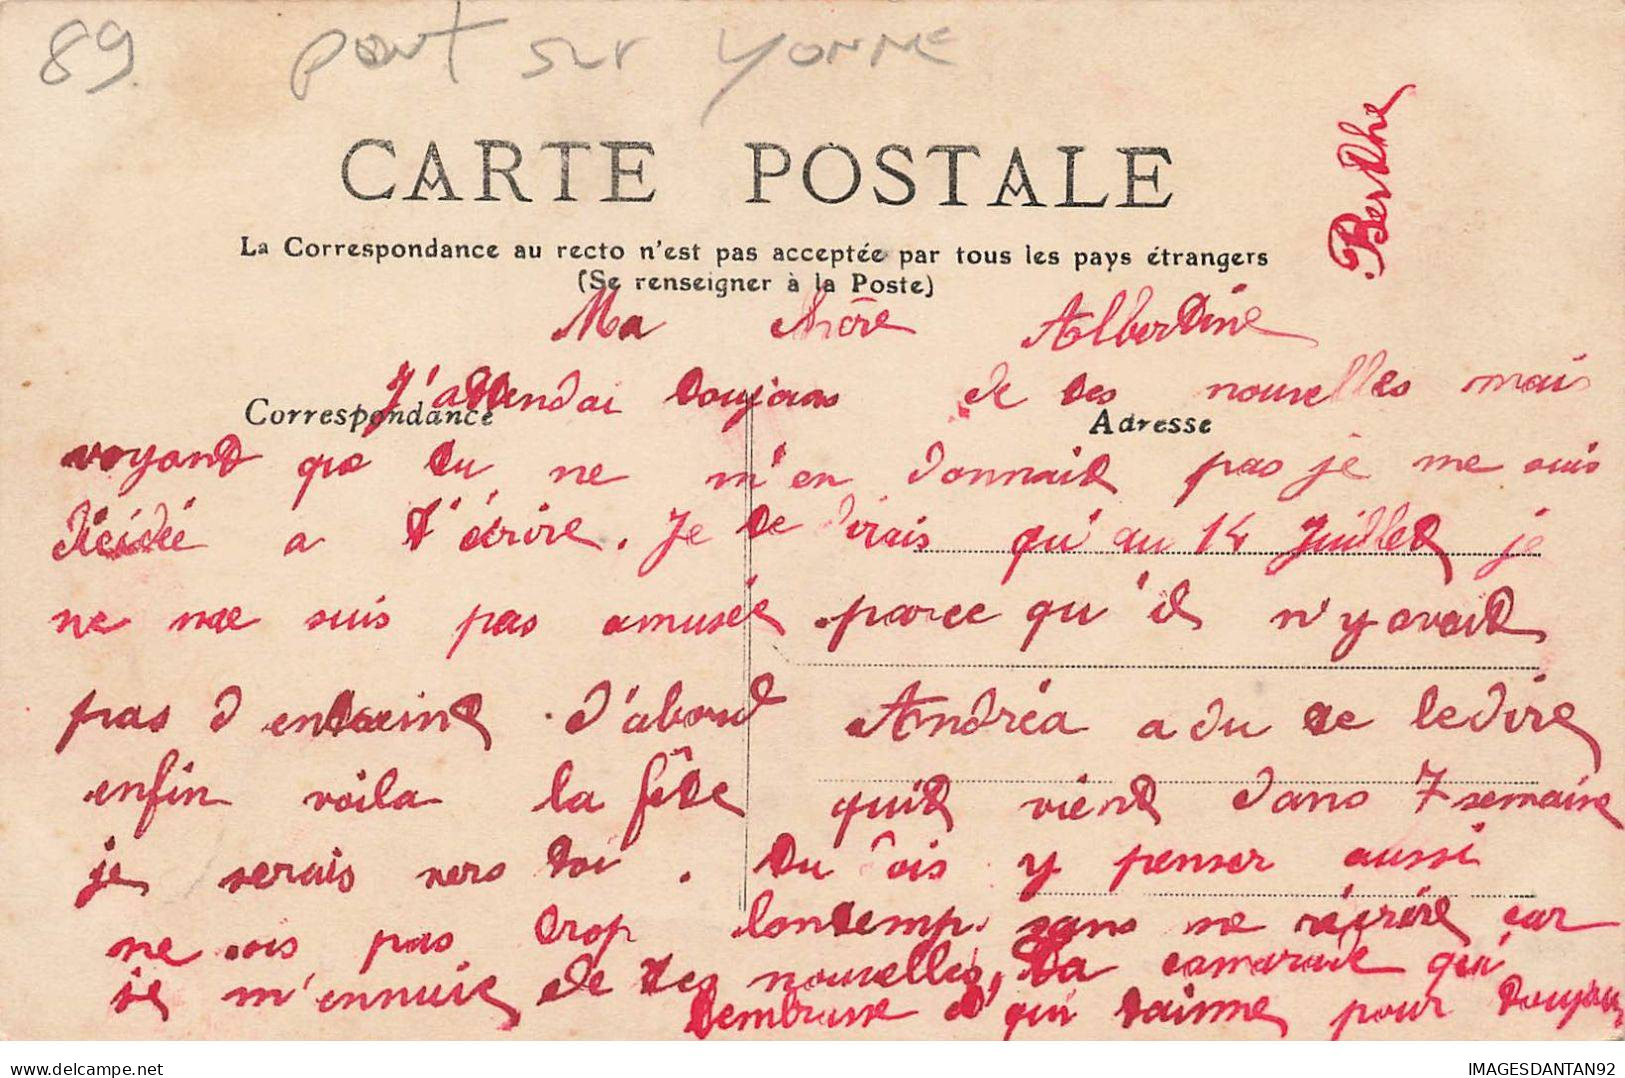 89 pont sur yonne
Berthe
CARTE POSTALE
La Correspondance au recto n'est pas acceptée par tous les pays étrangers
(Se renseigner à la Poste)
Ma chère Albertine
J'attendai toujours de tes nouvelles mais
Correspondance
Adresse
voyant que tu ne m'en donnait pas je me suis
décidée a t'écrire. Je te dirais qu'au 14 Juillet je
ne me suis pas amusée parce qu'il n'y avait
pas d'entseint d'abord Andréa a du te ledire
enfin voila la fête quit vient dans 7 semaine
je serais vers toi. tu dois y penser aussi
ne sois pas trop lontemp sans me récrire car
je m'ennuie de tes nouvelles, ta camarade qui
t'embrasse et qui t'aime pour toujours
IMAGESDANTAN92